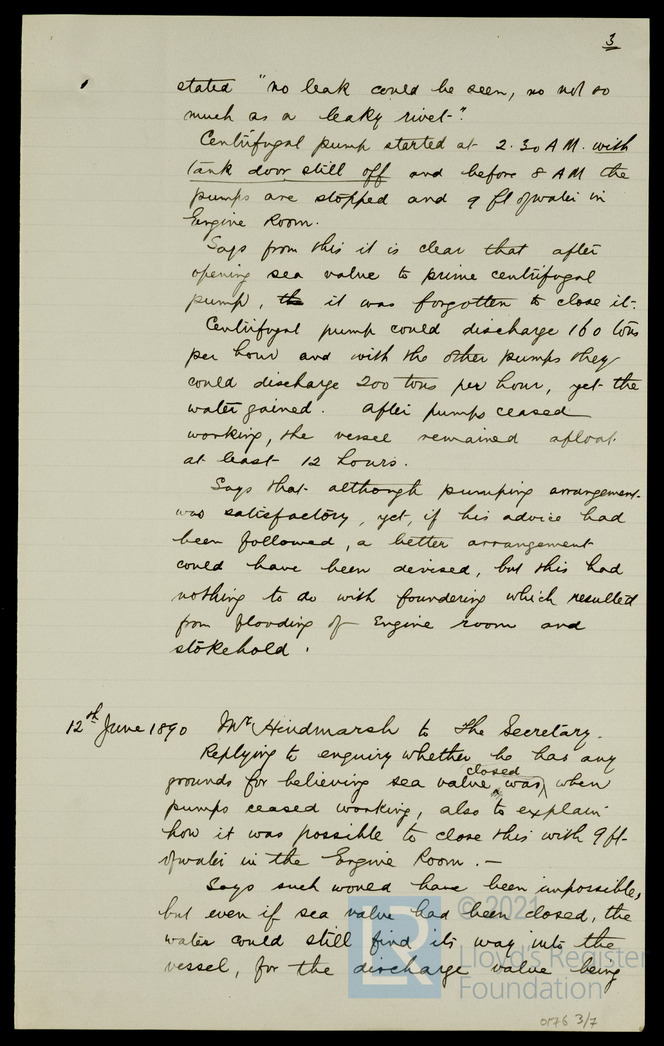 3
stated "no leak could be seen, no not so
much as a leaky rivet".
Centrifugal pump started at 2.30 A M. with
tank door still off and before 8 A M the
pumps are stopped and 9 ft of water in
Engine Room.
Says from this it is clear that after
opening sea valve to prime centrifugal
pump, th it was forgotten to close it.
Centrifugal pump could discharge 160 tons
per hour and with the other pumps they
could discharge 200 tons per hour, yet the
water gained. After pumps ceased
working, the vessel remained afloat
at least 12 hours.
Says that although pumping arrangement
was satisfactory, yet, if his advice had
been followed, a better arrangement
could have been devised, but this had
nothing to do with foundering which resulted
from flooding of Engine room and
stokehold.
12th June 1890 Mr Hindmarsh to the Secretary.
Replying to enquiry whether he has any
grounds for believing sea valve was closed when
pumps ceased working, also to explain
how it was possible to close this with 9 ft
of water in the Engine Room. —
Says such would have been impossible,
but even if sea valve had been closed, the
water could still find its way into the
vessel, for the discharge valve being
LR © 2021
Lloyd's Register
Foundation
0176 3/7